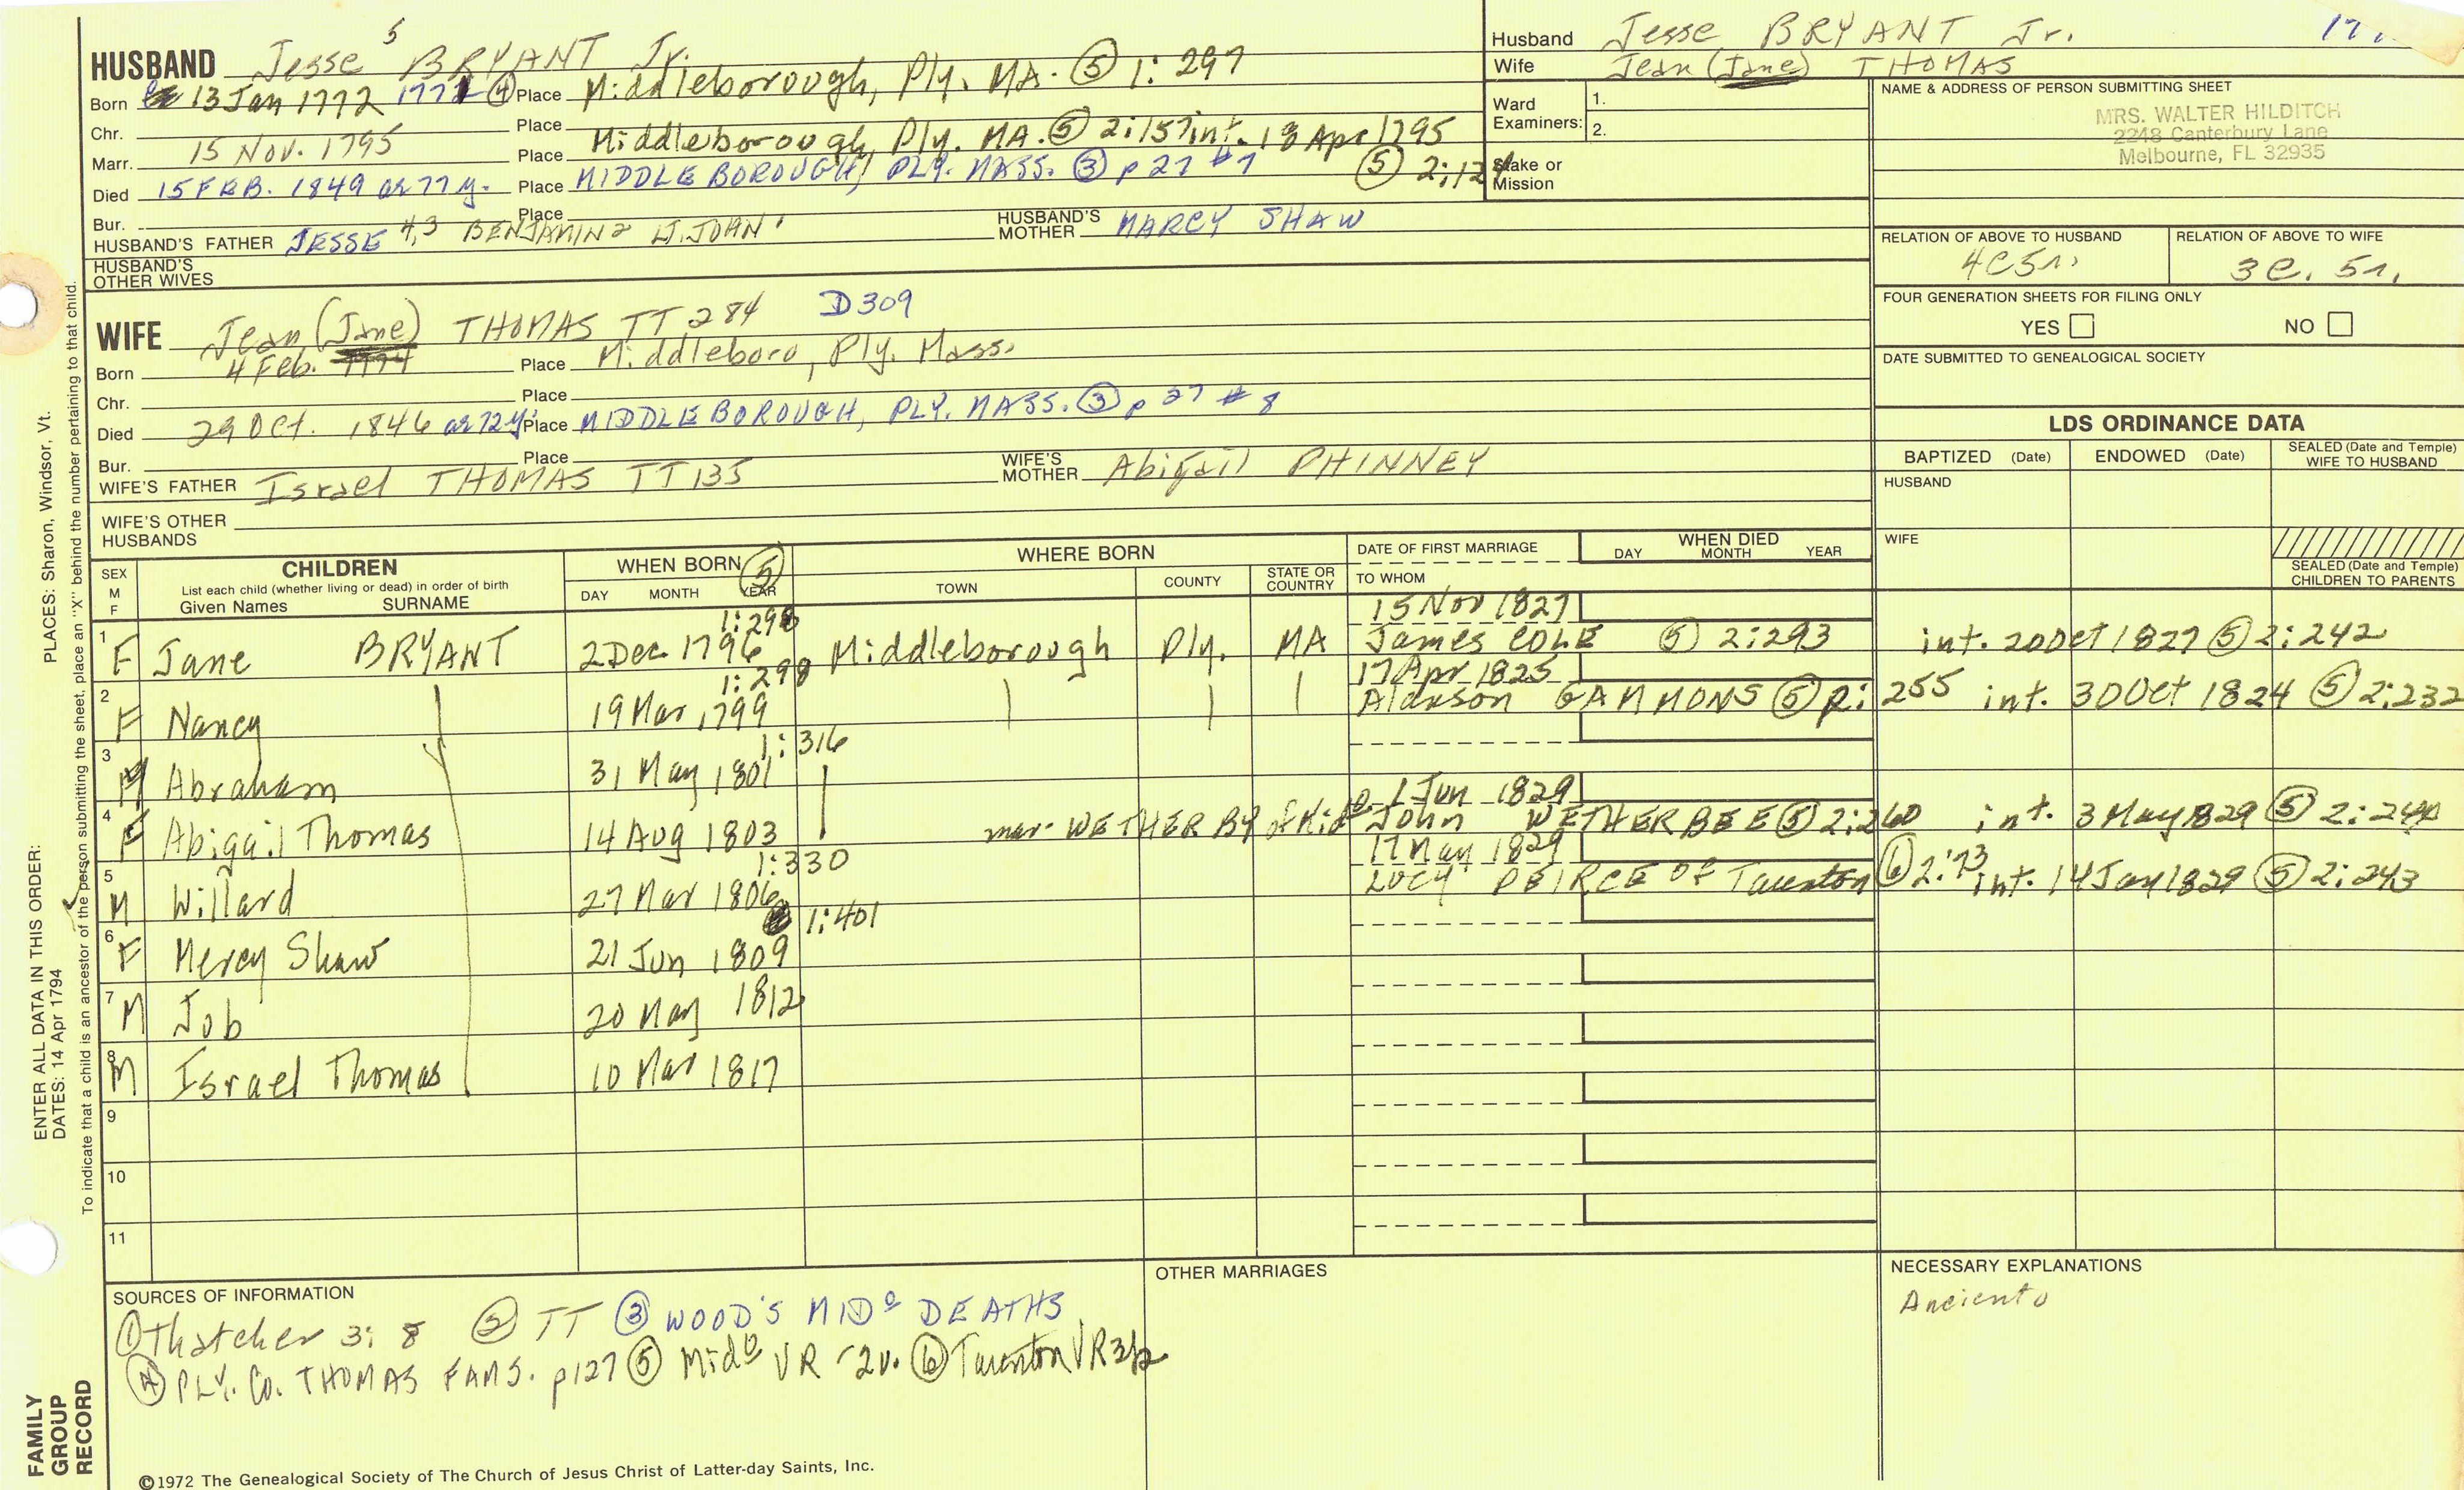 HUSBAND Jesse 5 BRYANT Jr.
Born 13 Jan 1772 1771 ④ Place Middleborough, Ply. MA. ⑤ 1:297
Chr. Place
Marr. 15 Nov. 1795 Place Middleborough, Ply. MA. ⑤ 2:157 int. 18 Apr 1795
Died 15 FEB. 1849 ae 77 y. Place MIDDLEBOROUGH, PLY. MASS. ③ p 27 #7 ⑤ 2:124
Bur. Place
HUSBAND'S FATHER JESSE 4,3 BENJAMIN 2 LT. JOHN 1 HUSBAND'S MOTHER MARCY SHAW
HUSBAND'S OTHER WIVES
WIFE Jean (Jane) THOMAS TT 284 D309
Born 4 Feb. 1774 Place Middleboro, Ply. Mass.
Chr. Place
Died 29 Oct. 1846 ae 72 y. Place MIDDLEBOROUGH, PLY. MASS. ③ p 27 #8
Bur. Place
WIFE'S FATHER Israel THOMAS TT 135 WIFE'S MOTHER Abigail PHINNEY
WIFE'S OTHER HUSBANDS
Husband Jesse BRYANT Jr. 17
Wife Jean (Jane) THOMAS
Ward Examiners: 1.
2.
Stake or Mission
NAME & ADDRESS OF PERSON SUBMITTING SHEET
MRS. WALTER HILDITCH
2248 Canterbury Lane
Melbourne, FL 32935
RELATION OF ABOVE TO HUSBAND RELATION OF ABOVE TO WIFE
4C5r. 3C. 5r.
FOUR GENERATION SHEETS FOR FILING ONLY
YES NO
DATE SUBMITTED TO GENEALOGICAL SOCIETY
LDS ORDINANCE DATA
BAPTIZED (Date) ENDOWED (Date) SEALED (Date and Temple) WIFE TO HUSBAND
HUSBAND
WIFE
SEALED (Date and Temple) CHILDREN TO PARENTS
SEX M F CHILDREN WHEN BORN ⑤ WHERE BORN DATE OF FIRST MARRIAGE WHEN DIED
List each child (whether living or dead) in order of birth
Given Names SURNAME DAY MONTH YEAR TOWN COUNTY STATE OR COUNTRY TO WHOM DAY MONTH YEAR
1:298 15 Nov 1827
1 F Jane BRYANT 2 Dec 1796 Middleborough Ply. MA James COLE ⑤ 2:293 int. 20 Oct 1827 ⑤ 2:242
1:298 17 Apr 1825
2 F Nancy 19 Mar 1799 GAMMONS ⑤ 2:255 int. 30 Oct 1824 ⑤ 2:232
1:316
3 M Abraham 31 May 1801
1 Jun 1829
4 F Abigail Thomas 14 Aug 1803 mar. WETHERBY of Mido John WETHERBEE ⑤ 2:260 int. 3 May 1829 ⑤ 2:244
1:330 17 May 1829
5 M Willard 27 Mar 1806 LUCY PEIRCE of Taunton ⑥ 2:73 int. 14 Jan 1829 ⑤ 2:243
1:401
6 F Mercy Shaw 21 Jun 1809
7 M Job 20 May 1812
8 M Israel Thomas 10 Mar 1817
9
10
11
SOURCES OF INFORMATION
① Thatcher 3:8 ② TT ③ WOOD'S MIDo DEATHS
④ PLY. Co. THOMAS FAMS. p127 ⑤ Mido VR -2v. ⑥ Taunton VR
OTHER MARRIAGES
NECESSARY EXPLANATIONS
©1972 The Genealogical Society of The Church of Jesus Christ of Latter-day Saints, Inc.
FAMILY GROUP RECORD
ENTER ALL DATA IN THIS ORDER:
DATES: 14 Apr 1794 PLACES: Sharon, Windsor, Vt.
To indicate that a child is an ancestor of the person submitting the sheet, place an "X" behind the number pertaining to that child.